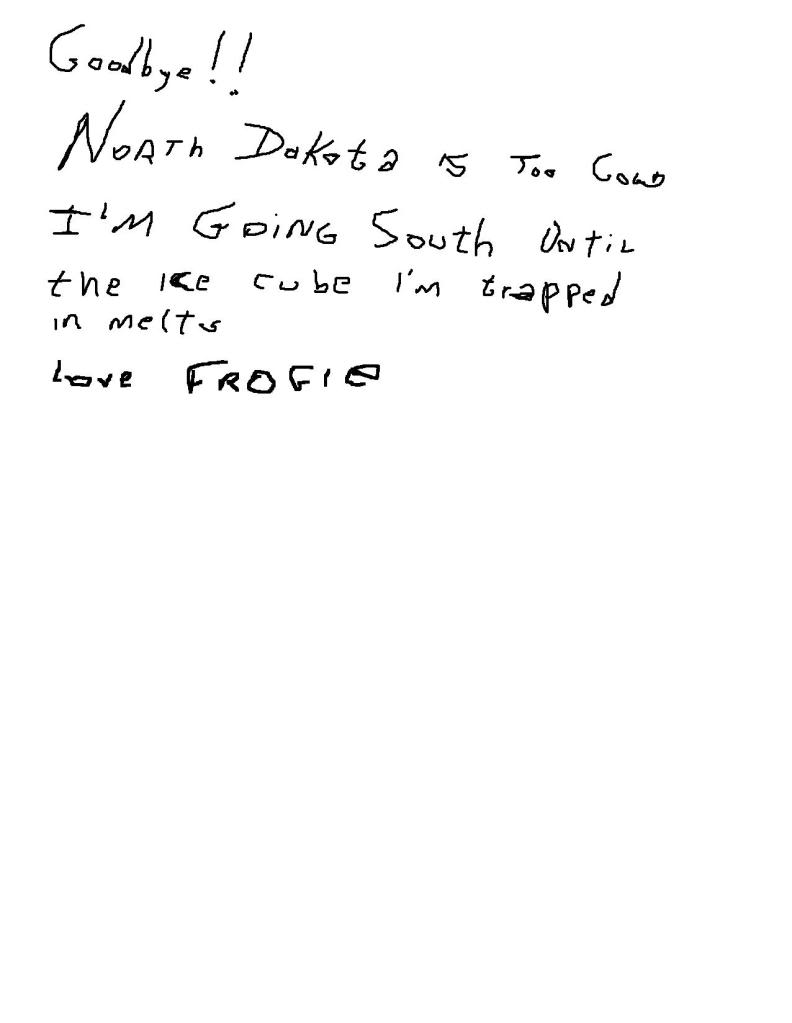 Goodbye!!
NORTh Dakota is Too Cold
I'M GOING South UNtiL
the ICE cube I'm trapped
in melts
Love FROGIE